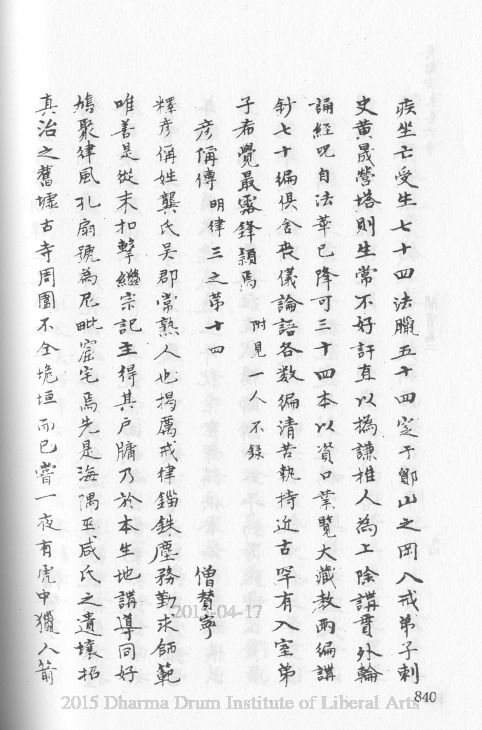 疾坐亡受生七十四法臘五十四窆于鄮山之岡入戒弟子刺
史黃晟營塔則生常不好訐直以撝謙推人為上除講貫外輪
誦經呪自法華已降可三十四本以資口業覽大藏教兩編講
鈔七十編俱舍喪儀論語各數編清苦執持近古罕有入室弟
子希覺最露鋒穎焉 附見一人不錄
彥偁傳 明律三之第十四 僧贊寧
釋彥偁姓龔氏吳郡常熟人也揭厲戒律錙銖塵務勤求師範
唯善是從末扣擊繼宗記主得其戶牖乃於本生地講導同好
鳩聚律風孔扇號為尼毗窟宅焉先是海隅巫咸氏之遺壤招
真治之舊墟古寺周圍不全堍垣而已嘗一夜有虎中獵人箭
840
2013-04-17
2015 Dharma Drum Institute of Liberal Arts